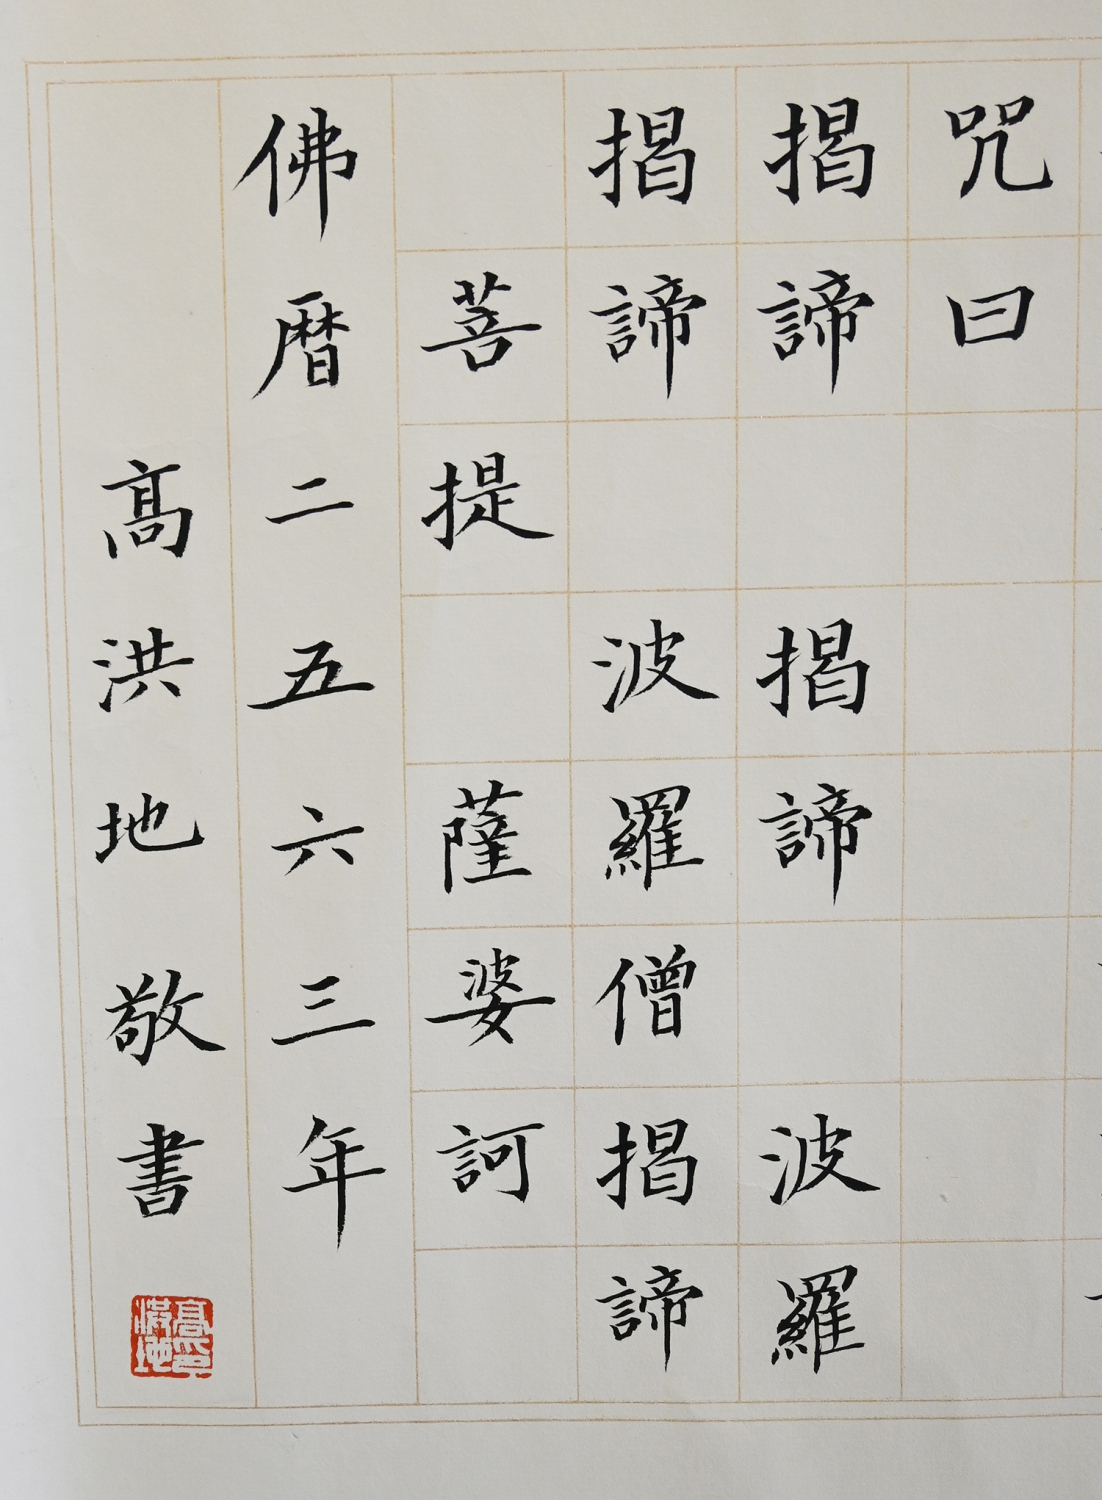 咒曰
揭諦 揭諦 波羅
揭諦 波羅僧揭諦
菩提 薩婆訶
佛曆二五六三年
高洪地敬書
高洪地印